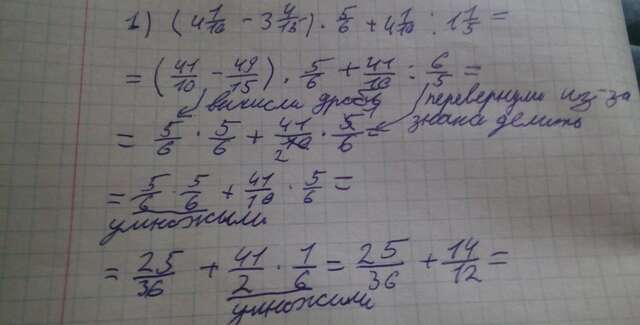 1) (4 1/10 - 3 4/15) · 5/6 + 4 1/10 : 1 1/5 =
= (41/10 - 49/15) · 5/6 + 41/10 : 6/5 =
вычисли дробь перевернули из-за
знака делить
= 5/6 · 5/6 + 41/10 · 5/6 =
2 1
= 5/6 · 5/6 + 41/10 · 5/6 =
умножили
= 25/36 + 41/2 · 1/6 = 25/36 + 14/12 =
умножили